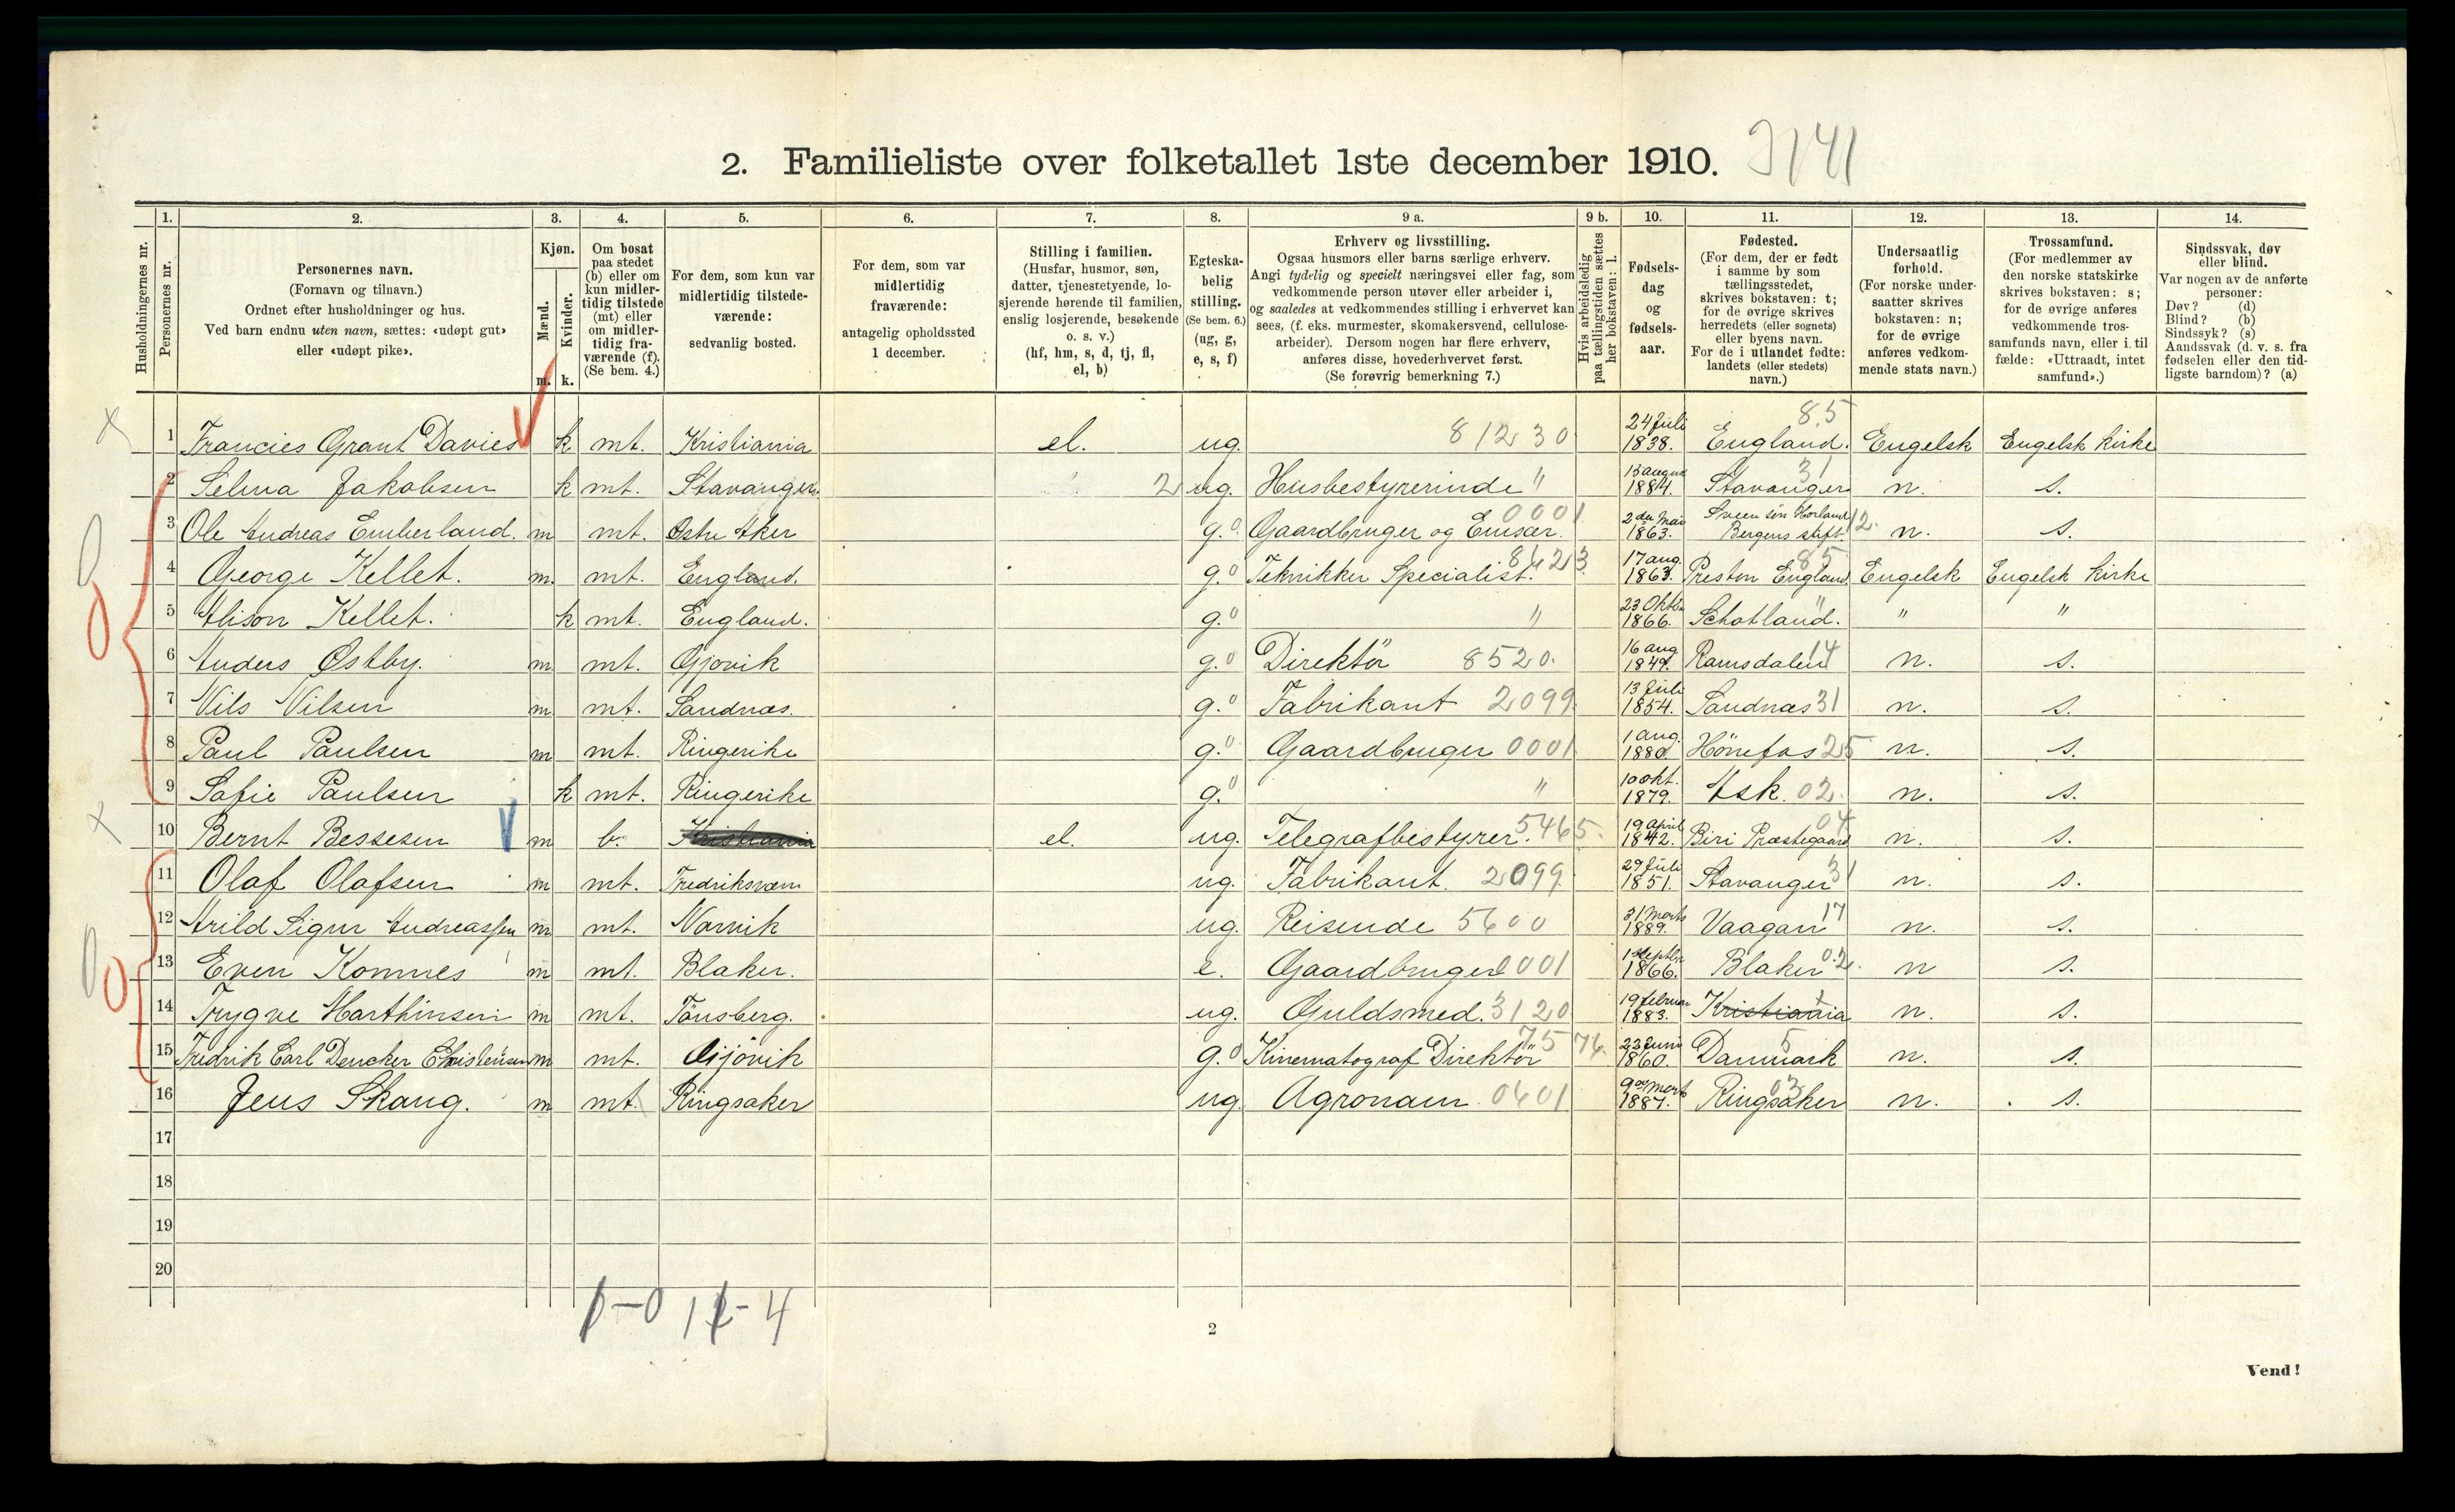 2. Familieliste over folketallet 1ste december 1910. 3141
Husholdningernes nr.
1.
Personernes nr.
2.
Personernes navn.
(Fornavn og tilnavn.)
Ordnet efter husholdninger og hus.
Ved barn endnu uten navn, sættes: «udøpt gut»
eller «udøpt pike».
3.
Kjøn.
Mænd.
Kvinder.
m. k.
4.
Om bosat
paa stedet
(b) eller om
kun midler-
tidig tilstede
(mt) eller
om midler-
tidig fra-
værende (f).
(Se bem. 4.)
5.
For dem, som kun var
midlertidig tilstede-
værende:
sedvanlig bosted.
6.
For dem, som var
midlertidig
fraværende:
antagelig opholdssted
1 december.
7.
Stilling i familien.
(Husfar, husmor, søn,
datter, tjenestetyende, lo-
sjerende hørende til familien,
enslig losjerende, besøkende
o. s. v.)
(hf, hm, s, d, tj, fl,
el, b)
8.
Egteska-
belig
stilling.
(Se bem. 6.)
(ug, g,
e, s, f)
9 a.
Erhverv og livsstilling.
Ogsaa husmors eller barns særlige erhverv.
Angi tydelig og specielt næringsvei eller fag, som
vedkommende person utøver eller arbeider i,
og saaledes at vedkommendes stilling i erhvervet kan
sees, (f. eks. murmester, skomakersvend, cellulose-
arbeider). Dersom nogen har flere erhverv,
anføres disse, hovederhvervet først.
(Se forøvrig bemerkning 7.)
9 b.
Hvis arbeidsledig
paa tællingstiden sættes
her bokstaven: l.
10.
Fødsels-
dag
og
fødsels-
aar.
11.
Fødested.
(For dem, der er født
i samme by som
tællingsstedet,
skrives bokstaven: t;
for de øvrige skrives
herredets (eller sognets)
eller byens navn.
For de i utlandet fødte:
landets (eller stedets)
navn.)
12.
Undersaatlig
forhold.
(For norske under-
saatter skrives
bokstaven: n;
for de øvrige
anføres vedkom-
mende stats navn.)
13.
Trossamfund.
(For medlemmer av
den norske statskirke
skrives bokstaven: s;
for de øvrige anføres
vedkommende tros-
samfunds navn, eller i til-
fælde: «Uttraadt, intet
samfund».)
14.
Sindssvak, døv
eller blind.
Var nogen av de anførte
personer:
Døv? (d)
Blind? (b)
Sindssyk? (s)
Aandssvak (d. v. s. fra
fødselen eller den tid-
ligste barndom)? (a)
1 Francies Grant Davies k mt. Kristiania el. ug. 81230 24 Juli 1838. England. 85 Engelsk Engelsk kirke
2 Selma Jakobsen k mt. Stavanger 2 ug. Husbestyrerinde " 13 august 1884. Stavanger 31 n. s.
3 Ole Andreas Emberland. m mt. Østre Aker g. 0 Gaardbruger og Emisær. 0001 2den Mai 1863. Sveen søn Horland Bergens stift. 12. n. s.
4 George Kellet. m. mt. England. g. 0 Teknikker Specialist. 8423 17 aug. 1863. Preston England 85 Engelsk Engelsk kirke
5 Alison Kellet. k mt. England. g. 0 " 23 Oktbr 1866. Schotland. " " "
6 Anders Østby. m mt. Gjøvik g. 0 Direktör 8520. 16 aug 1849. Ramsdalen 14 n. s.
7 Nils Nilsen m mt. Sandnæs. g. 0 Fabrikant 2099 13 Juli 1854. Sandnæs 31 n. s.
8 Paul Paulsen m mt. Ringerike g. 0 Gaardbruger 0001 1 aug. 1880 Hönefos 25 n. s.
9 Sofie Paulsen k mt. Ringerike g. 0 " 10 okt. 1879. Ask. 02. n. s.
10 Bernt Bessesen m b. Kristiania el. ug. Telegrafbestyrer. 5465. 19 April 1842. Biri Præstegaard 04 n. s.
11 Olaf Olafsen m mt. Fredriksværn ug. Fabrikant. 2099 29 Juli 1851. Stavanger 31 n. s.
12 Arild Sigur Andreassen m mt. Narvik ug. Reisende 5600 31 Marts 1889. Vaagan 17 n. s.
13 Even Komnes m mt. Blaker. e. Gaardbruger 0001 1 Septbr 1866. Blaker 02. n s.
14 Trygve Marthinsen m mt. Tönsberg. ug. Guldsmed. 3120 19 februar 1883. Kristiania t n. s.
15 Fredrik Carl Dencker Christensen m mt. Gjövik g. 0 Kinematograf Direktör 7576. 22 Juni 1860. Danmark 5 n. s.
16 Jens Skaug. m mt. Ringsaker ug. Agronam 0401 9de Marts 1887. Ringsaker 03 n. s.
17
18
19
20
1-0 12-4
2
Vend!